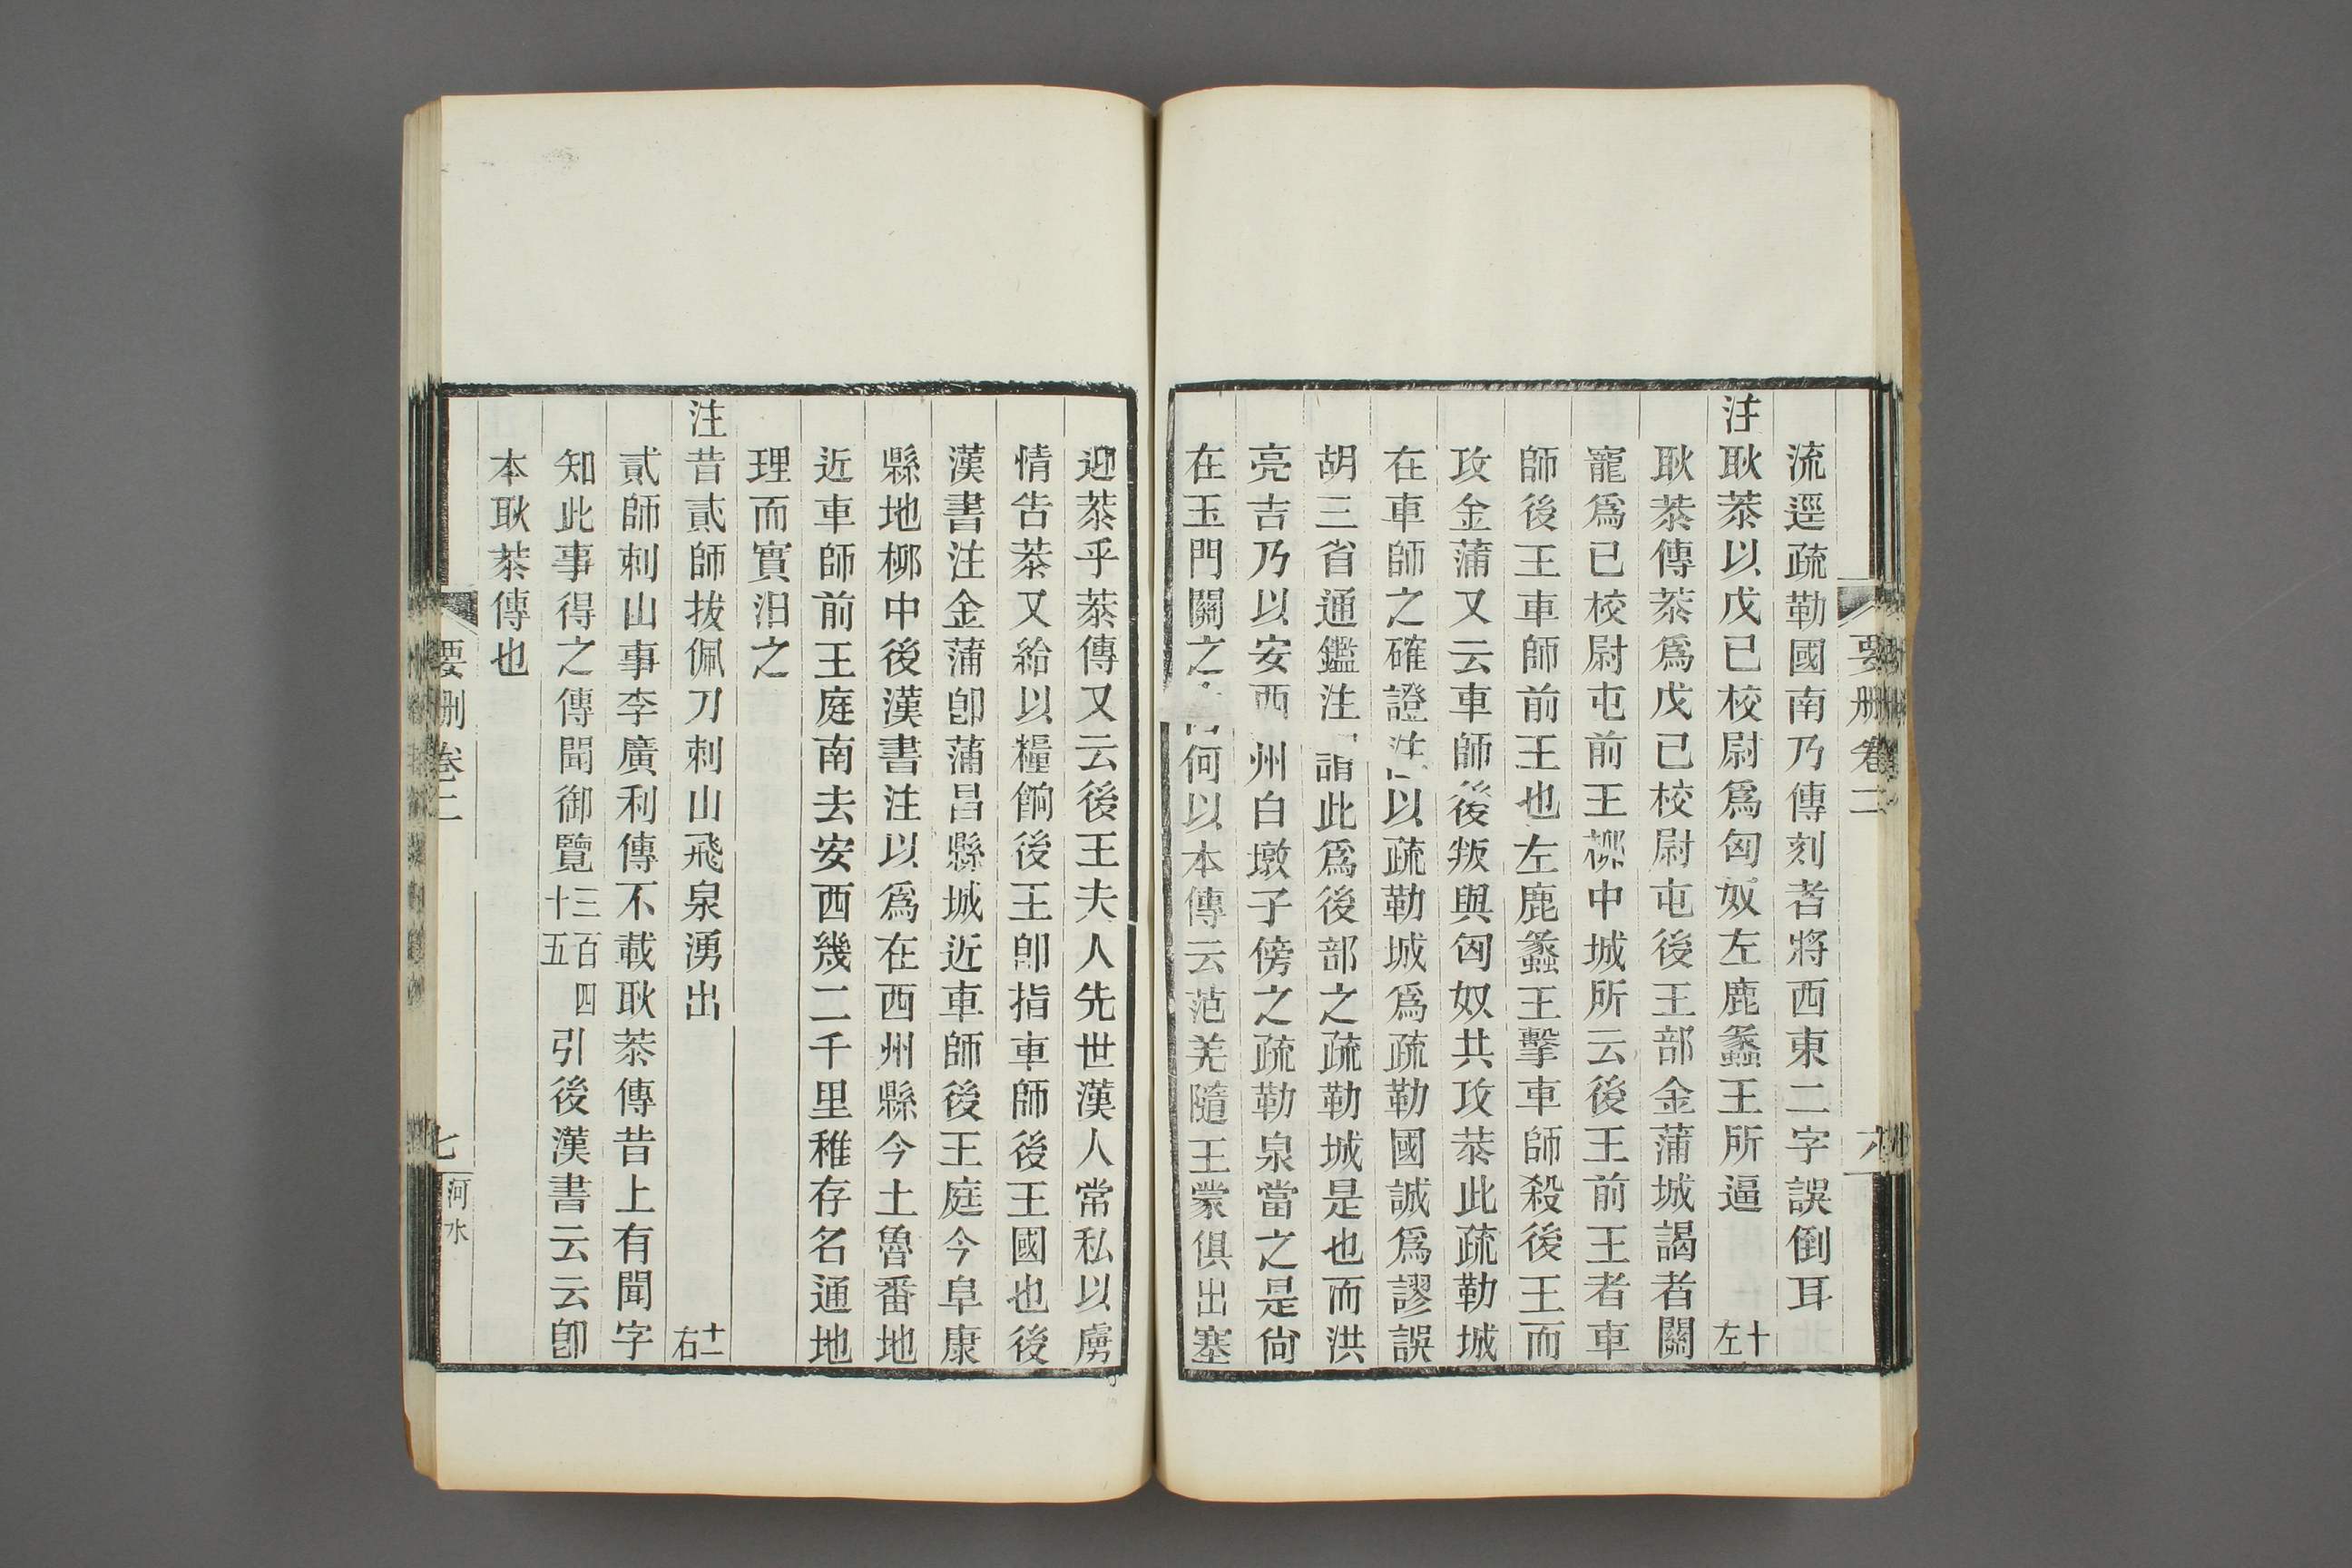 要刪卷二
六
流逕疏勒國南乃傳刻者將西東二字誤倒耳
注耿恭以戊己校尉爲匈奴左鹿蠡王所逼 十左
耿恭傳恭爲戊己校尉屯後王部金蒲城謁者關
寵爲己校尉屯前王栁中城所云後王前王者車
師後王車師前王也左鹿蠡王擊車師殺後王而
攻金蒲又云車師後叛與匈奴共攻恭此疏勒城
在車師之確證注以疏勒城爲疏勒國誠爲謬誤
胡三省通鑑注謂此爲後部之疏勒城是也而洪
亮吉乃以安西州白墩子傍之疏勒泉當之是尙
在玉門關之 何以本傳云范羌隨王蒙俱出塞
迎恭乎恭傳又云後王夫人先世漢人常私以虜
情告恭又給以糧餉後王卽指車師後王國也後
漢書注金蒲卽蒲昌縣城近車師後王庭今阜康
縣地栁中後漢書注以爲在西州縣今土魯番地
近車師前王庭南去安西幾二千里稚存名通地
理而實汨之
注昔貳師拔佩刀刺山飛泉湧出 十一右
貳師刺山事李廣利傳不載耿恭傳昔上有聞字
知此事得之傳聞御覽三百四十五引後漢書云云卽
本耿恭傳也
要刪卷二
七
河水